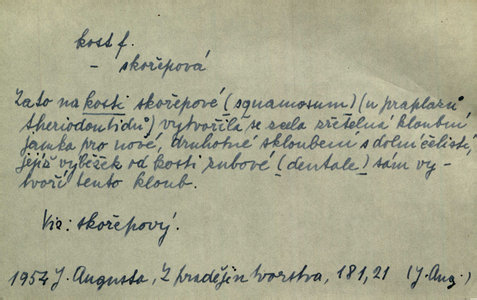 kost f.
– skořepová
Zato na kosti skořepové (squamosum) (u praplazů
theriodontidů) vytvořila se zcela zřetelná kloubní
jamka pro nové, druhotné skloubení s dolní čelistí,
jejíž výběžek od kosti zubové (dentale) sám vy-
tvoří tento kloub.
Viz: skořepový.
1954 J. Augusta, Z pradějin tvorstva, 181,21 (J. Aug.)